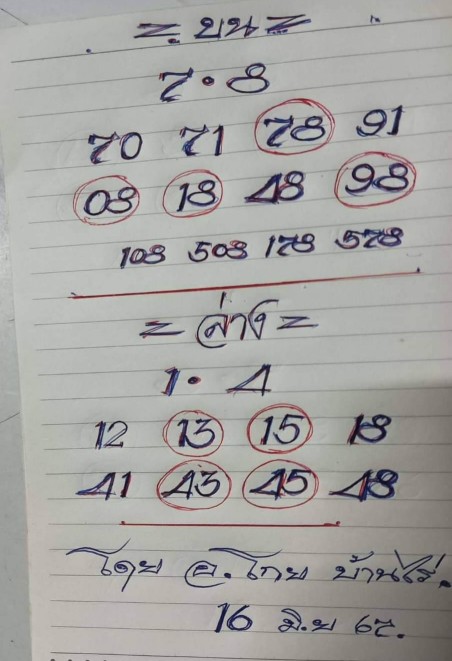 = บน =
7 • 8
70 71 78 91
08 18 48 98
108 508 178 578
= ล่าง =
1 • 4
12 13 15 18
41 43 45 48
โดย อ. โกย บ้านไร่.
16 มิ.ย 67.